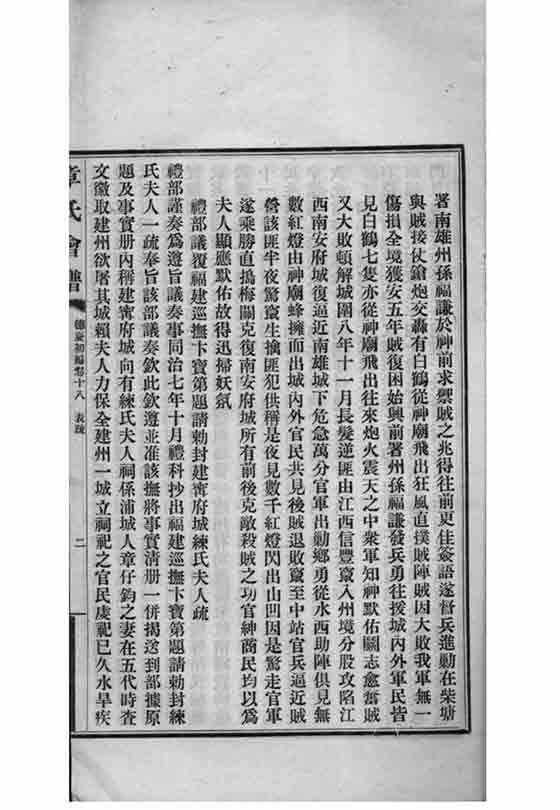 署南雄州孫福謙於神前求禦賊之兆得往前更佳簽語遂督兵進勦在柴塘
與賊接仗鎗炮交轟有白鶴從神廟飛出狂風直撲賊陣賊因大敗我軍無一
傷損全境獲安五年賊復困始興前署州孫福謙發兵勇往援城內外軍民皆
見白鶴七隻亦從神廟飛出往來炮火震天之中衆軍知神默佑鬭志愈奮賊
又大敗頓解城圍八年十一月長髮逆匪由江西信豐竄入州境分股攻陷江
西南安府城復逼近南雄城下危急萬分官軍出勦鄉勇從水西助陣俱見無
數紅燈由神廟蜂擁而出城內外官民共見後賊退敗竄至中站官兵逼近賊
營該匪半夜驚竄生擒匪犯供稱是夜見數千紅燈閃出山凹因是驚走官軍
遂乘勝直搗梅關克復南安府城所有前後克敵殺賊之功官紳商民均以爲
夫人顯應默佑故得迅掃妖氛
禮部議覆福建巡撫卞寶第題請勅封建甯府城練氏夫人疏
禮部謹奏爲遵旨議奏事同治七年十月禮科抄出福建巡撫卞寶第題請勅封練
氏夫人一疏奉旨該部議奏欽此欽遵並准該撫將事實清册一併揭送到部據原
題及事實册內稱建甯府城向有練氏夫人祠係浦城人章仔鈞之妻在五代時查
文徽取建州欲屠其城賴夫人力保全建州一城立祠祀之官民虔祀已久水旱疾
章氏會譜
德慶初編卷十八 表疏
二